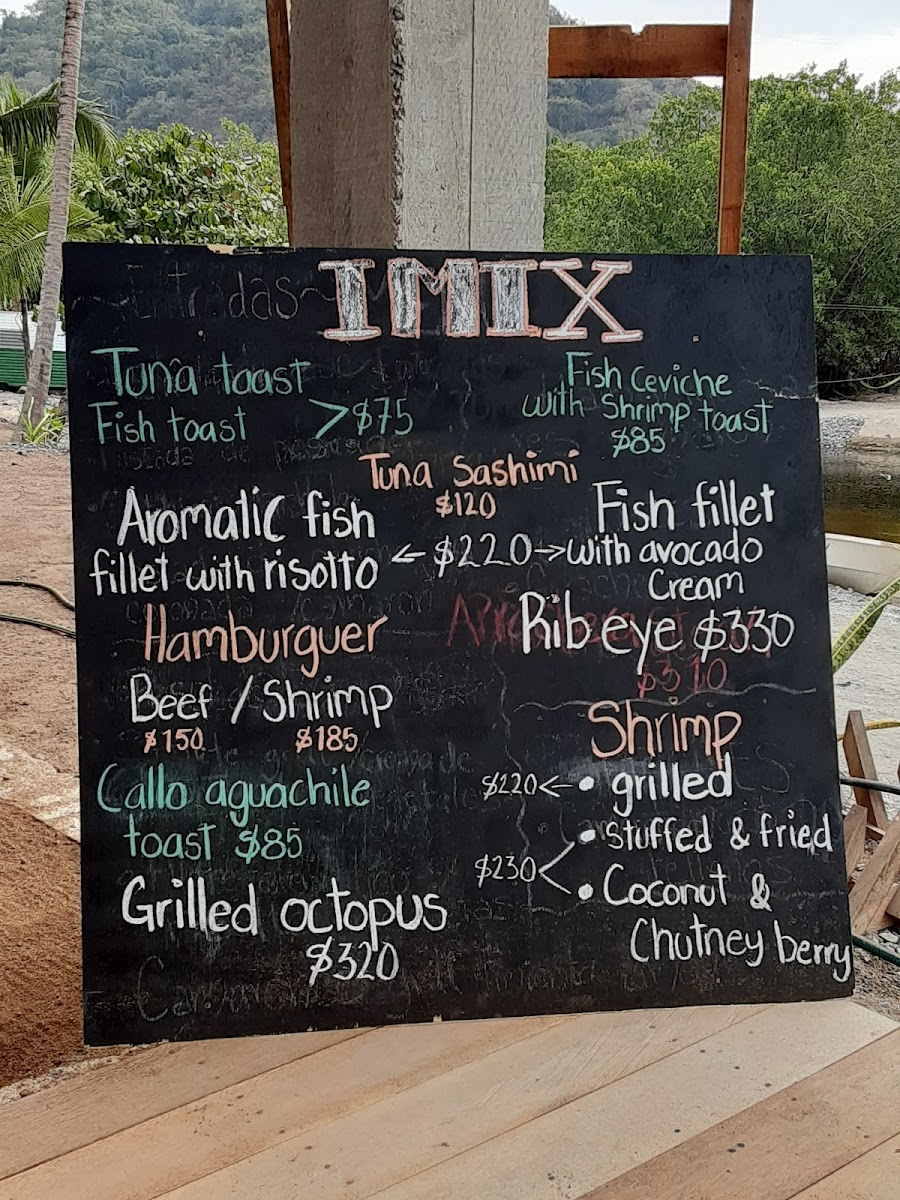 Entradas
IMIX
Tuna toast
Fish toast >$75
Fish Ceviche
with Shrimp toast
$85
Tuna Sashimi
$120
Aromatic fish
fillet with risotto
← $220 →
Fish fillet
with avocado
Cream
Hamburguer
Beef / Shrimp
$150 $185
Rib eye $330
$310
Callo aguachile
toast $85
Grilled octopus
$320
Shrimp
$220 ← • grilled
• Stuffed & fried
$230 <
• Coconut &
Chutney berry